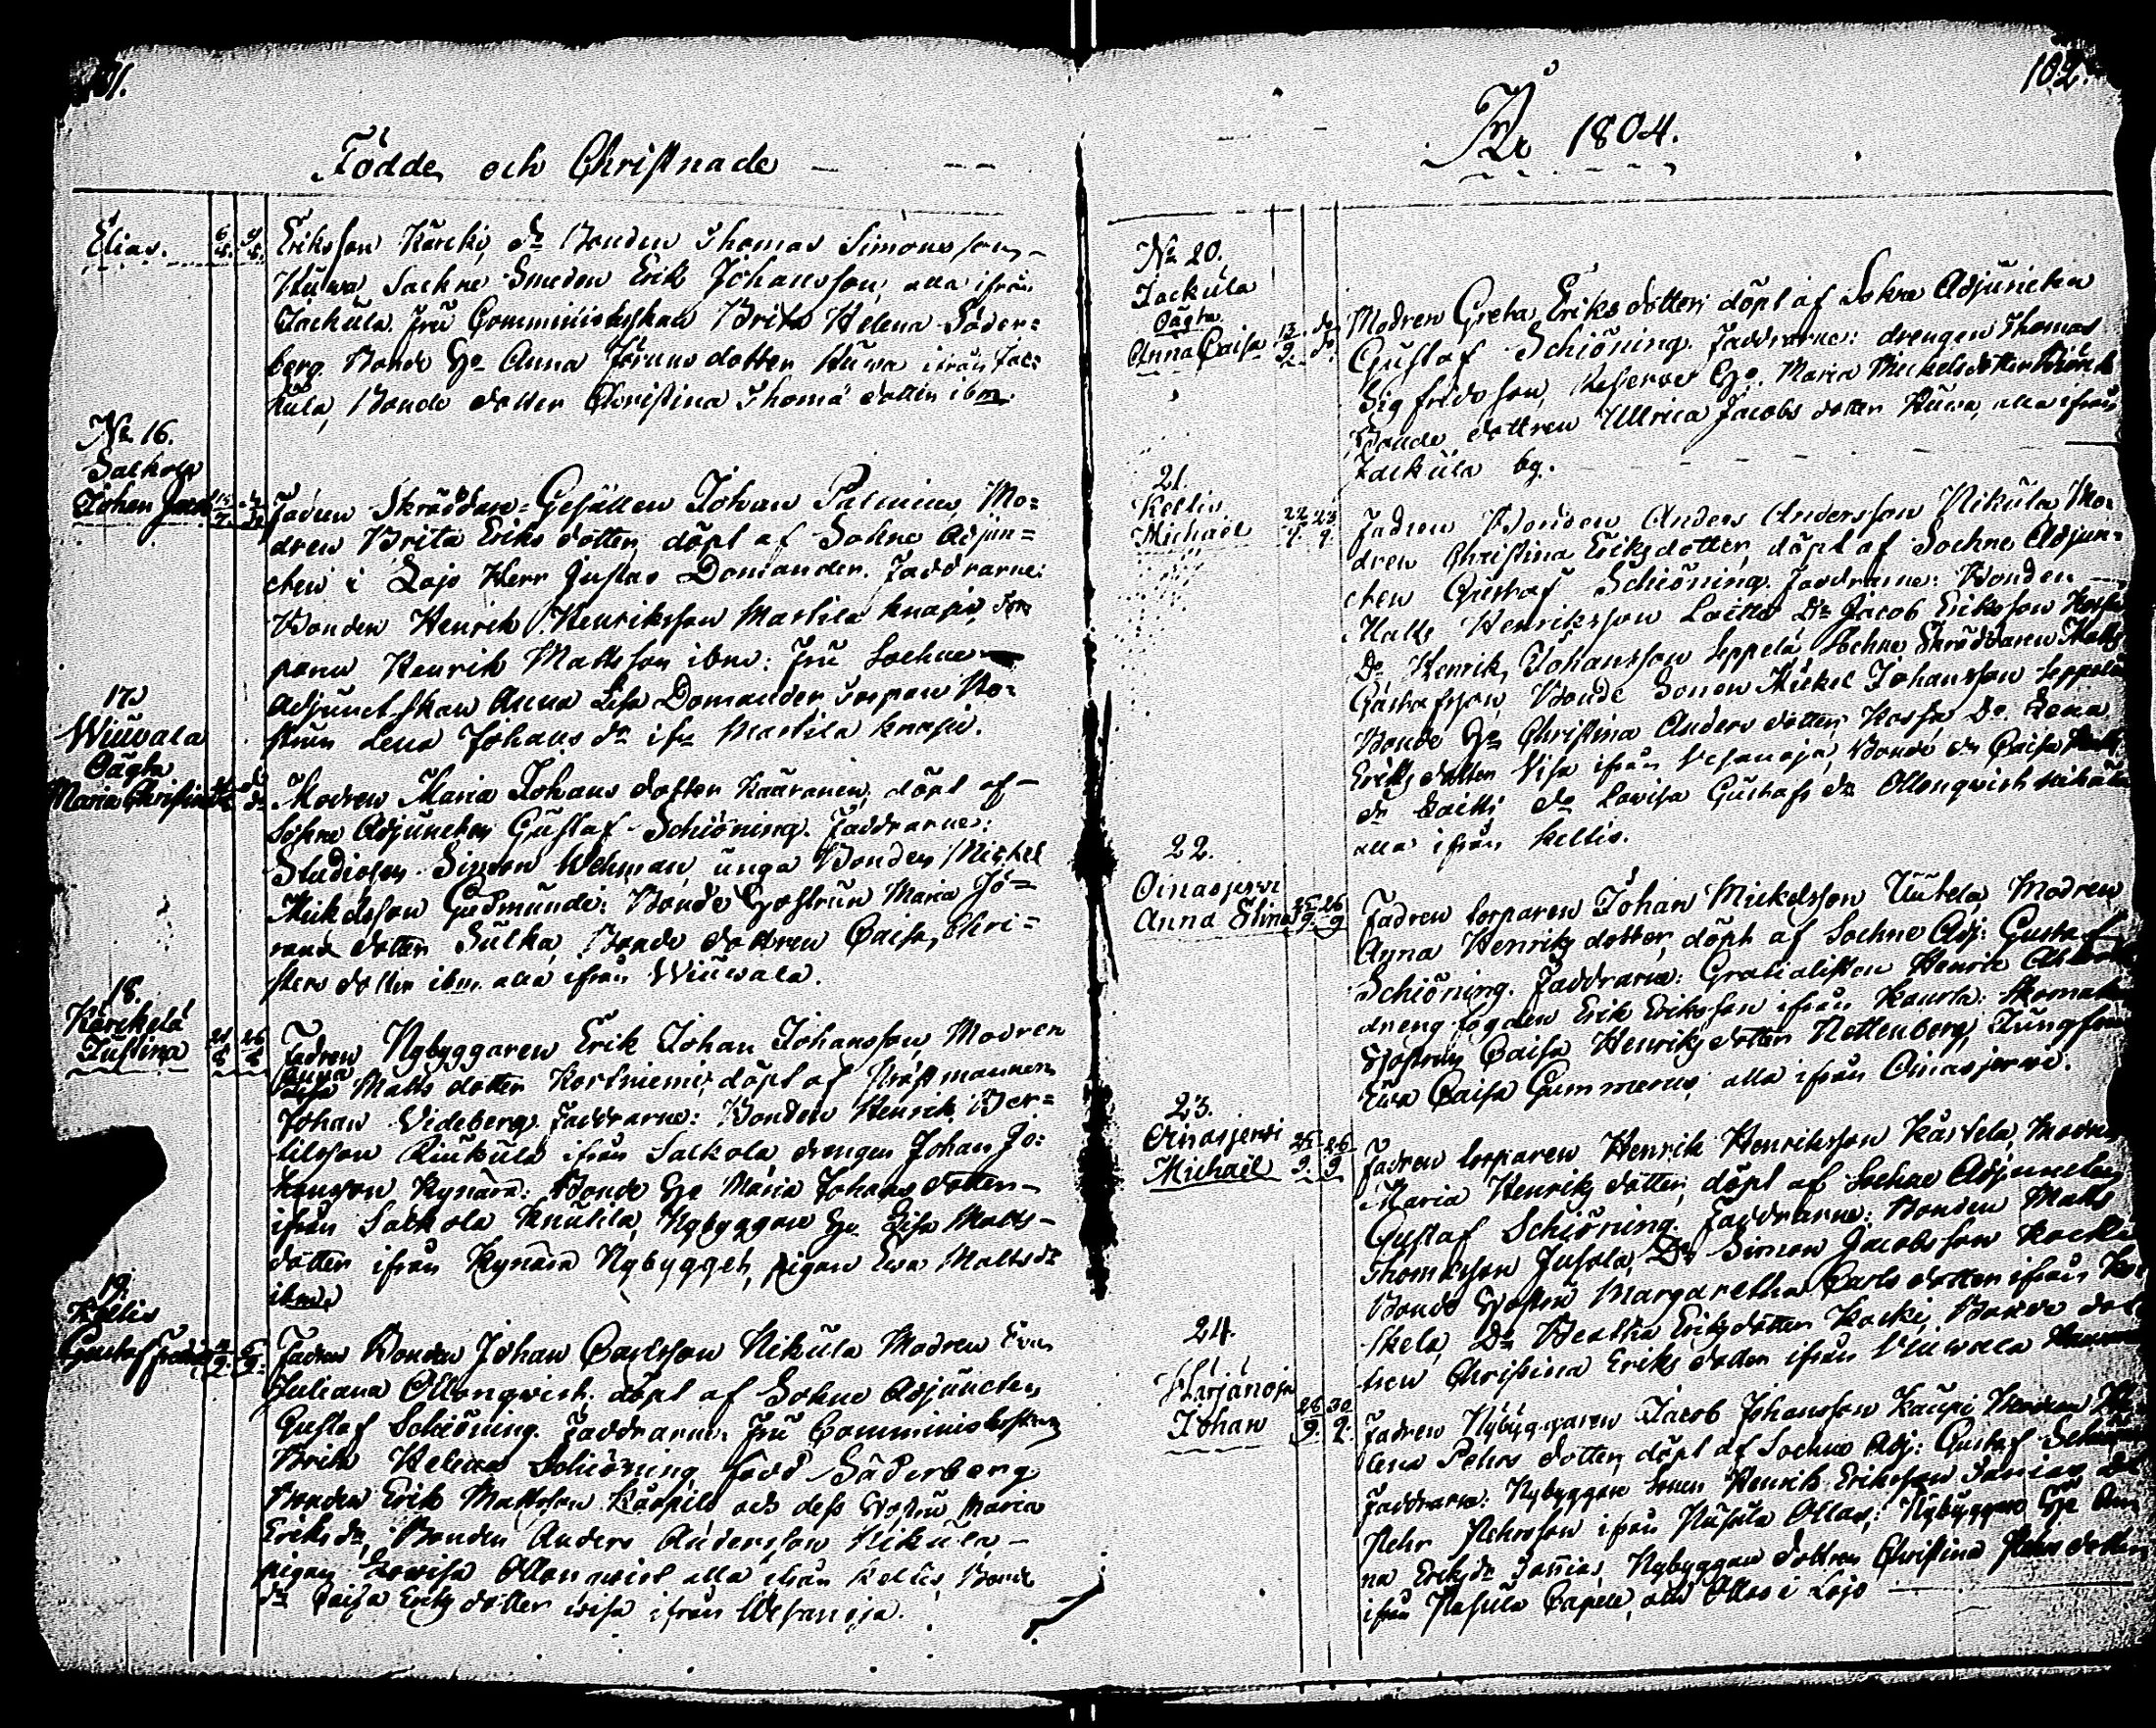 101.
Födde och Christnade
Elias.
Eriksson Kärcki, Do Bonden Thomas Simonsson
Huwa Sockne Smeden Erik Johansson, alla ifrån
Jackula. Fru Comministerskan Brita Helena Söder=
berg. Bonde Ho Anna Görans dotter Huwa ifrån Jac=
kula, Bonde dotter Christina Thomæ dotter ibm:
No 16.
Salkola
Johan Jacob
Fadren Skräddare=Gesällen Johan Palenius, Mo=
dren Brita Eriks dotter, döpt af Sokne Adjun=
cten i Lojo Herr Gustav Domander. Faddrarne:
Bonden Henrik Henriksson Martila knapin, Tor
paren Henrik Mattsson ibm: Fru Sockne
Adjunctskan Anna Lisa Domander, Torpare Ho=
strun Lena Johans dr ifr Martila knapin.
17.
Wiuvala
Oägta
Maria Christina
Modren Maria Johans dotter Kääranen, döpt af
Sokne Adjuncten Gustaf Schiöning. Faddrarne:
Studiosen Simon Wehman, unga Bonden Mickel
Mickelsson Gudmundi: Bonde Hostrun Maria Gö=
rans dotter Sulka, Bonde dottren Caisa, Chri=
sters dotter ibm alla ifrån Wiuwala.
18.
Kärckelä
Justina
21 26
Fadren Nybyggaren Erik Johan Johansson, Modren
Anna
Lisa Matts dotter Kortniemi, döpt af Prästmannen
Johan Videberg. Faddrarne: Bonden Henrik Ber=
tilsson Riukula ifrån Salkola drengen Johan Jo=
hansson Kynärä: Bonde Ho Maria Johans dotter
ifrån Salkola Knutila, Nybyggare Ho Lisa Matts
dotter ifrån Kynärä Nybygget, pigan Ewa Matts dr
ibm.
19.
Kellis
Gustaf Fredric
Fadren Bonden Johan Carlsson Nikula Modren Eva
Juliana Ollonqwist, döpt af Sokne Adjuncten
Gustaf Schiöning. Faddrarne: Fru Comministerskan
Brita Helena Schiöning född Söderberg
Bonden Erik Mattsson Kärpilä och dess Hostru Maria
Eriks dr, Bonden Anders Andersson Nikula,
pigan Lowisa Ollonqwist alla ifrån Kellis, Bonde
dr Caisa Eriks dotter Wisa ifrån Wesanoja.
102.
År 1804.
No 20.
Jackula
Oägta
Anna Caisa
13 do
9. do
Modren Greta Eriks dotter, döpt af Sokne Adjuncten
Gustaf Schiöning. Faddrarne: drengen Thomas
Sigfridsson, Reserve Ho. Maria Mickelsdotter Björck
Bonde dottren Ullrica Jacobs dotter Huwa, alla ifrån
Jackula by.
21.
Kellis
Michaël
22 23
9. 9.
Fadren Bonden Anders Andersson Nikula, Mo=
dren Christina Eriks dotter, döpt af Sockne Adjun=
cten Gustaf Schiöning. Faddrarne: Bonden
Matts Henriksson Laitti Do Jacob Eriksson
Do, Henrik Johansson Seppelä Sockne Skräddaren Matts
Gustafsson, Bonde Sonen Mickel Johansson Seppelä
Bonde Ho Christina Anders dotter, Do. Lena
Eriks dotter Visa ifrån Vesanoja, Bonde dr Caisa
dr Laitti, do Lovisa Gustafs dr Ollonqwist
alla ifrån Kellis.
22.
Oinasjervi
Anna Stina
25 26
9. 9
Fadren Torparen Johan Mickelsson Uutela Modren
Anna Henriks dotter, döpt af Sockne Adj: Gustaf
Schiöning. Faddrarne: Gratialisten Henric
dreng fogden Erik Eriksson ifrån Kaurla.
Hostrun Caisa Henriks dotter Nettenberg, Jungfrun
Ewa Caisa Gummerus, alla ifrån Oinasjerwi.
23.
Oinasjerwi
Michaël
25 26
9. 9
Fadren Torparen Henrik Henriksson Kastela, Modren
Maria Henriks dotter, döpt af Sockne Adjuncten
Gustaf Schiöning. Faddrarne: Bonden Matts
Thomasson Jusola, Do Simon Jacobsson Kocki
Bonde Hostru Margaretha Carls dotter ifrån
Do Beatha Eriks dotter Kocki, Bonde
tren Christina Eriks dotter ifrån Wiuwala
24.
Härjänoja
Johan
28 30
9. 9.
Fadren Nybyggaren Jacob Johansson Kaupi Modren
Lena Pehrs dotter, döpt af Sockne Adj: Gustaf Schiöning
Faddrarne: Nybyggare Sonen Henrik Eriksson
Pehr Pehrsson ifrån Pusula Ollas, Nybyggare Ho An
na Eriks dr Nybyggare dottren Christina Pehrs dotter
ifrån Pusula Capell, och Ollas i Lojo